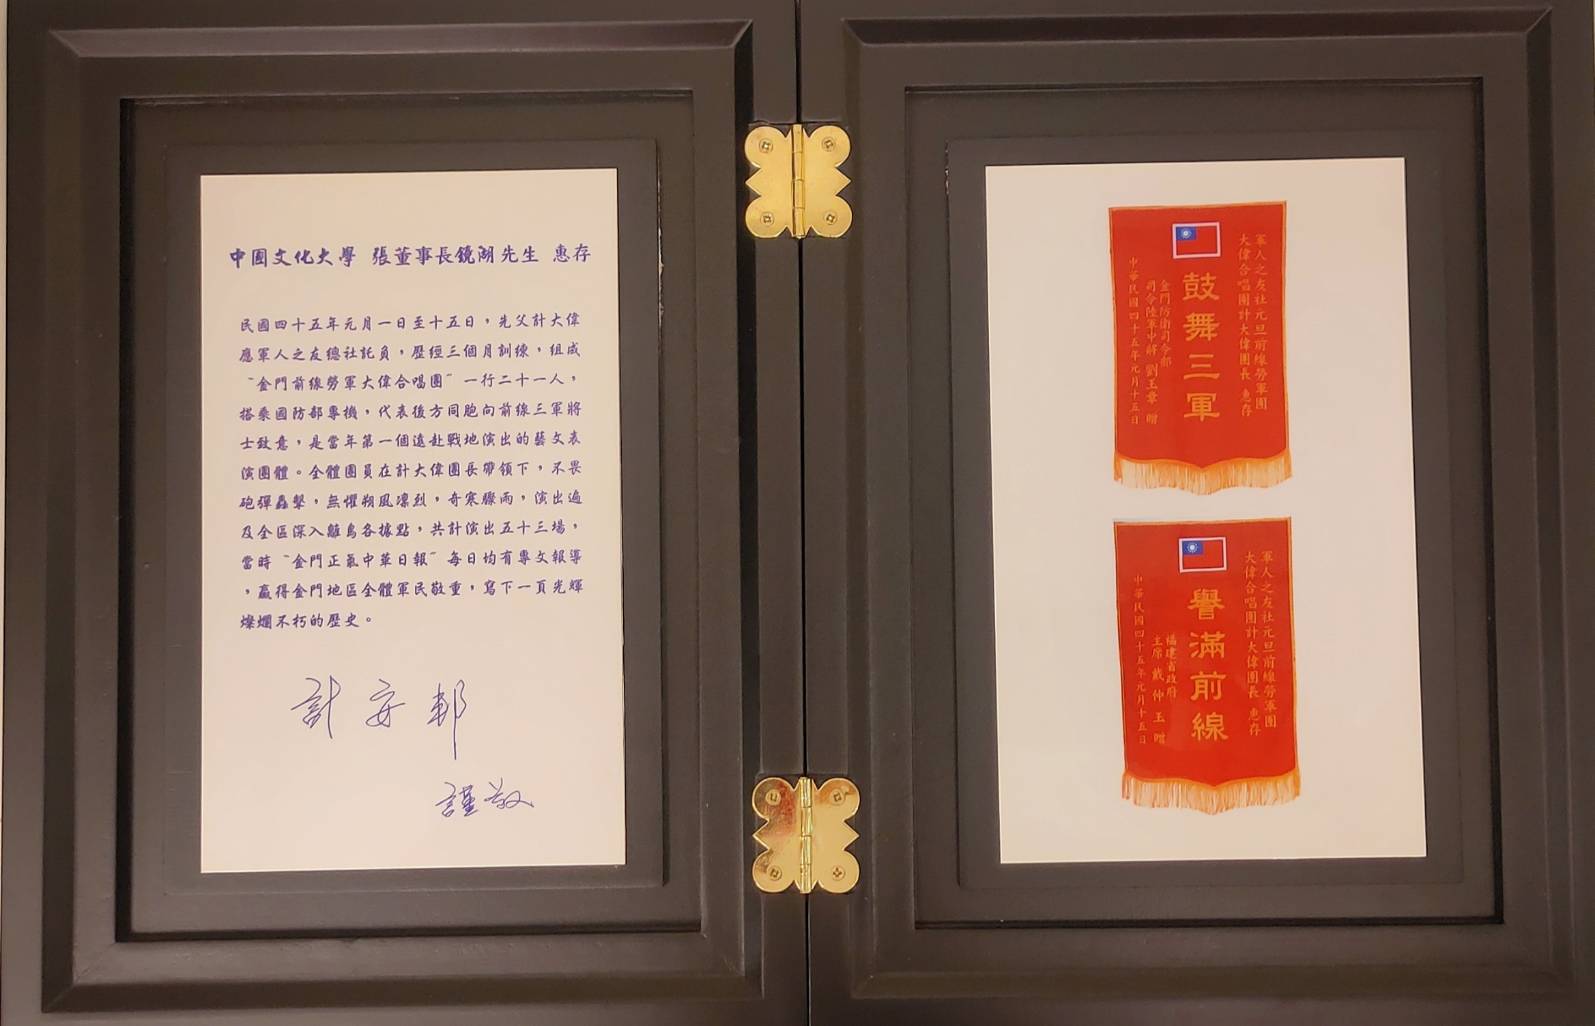 中國文化大學　張董事長鏡湖先生　惠存
民國四十五年元月一日至十五日，先父計大偉
應軍人之友總社託負，歷經三個月訓練，組成
〝金門前線勞軍大偉合唱團〞一行二十一人，
搭乘國防部專機，代表後方同胞向前線三軍將
士致意，是當年第一個遠赴戰地演出的藝文表
演團體。全體團員在計大偉團長帶領下，不畏
砲彈轟擊，無懼朔風凜烈，奇寒驟雨，演出遍
及全區深入離島各據點，共計演出五十三場，
當時〝金門正氣中華日報〞每日均有專文報導
，贏得金門地區全體軍民敬重，寫下一頁光輝
燦爛不朽的歷史。
計安邦
謹敬
軍人之友社元旦前線勞軍團
大偉合唱團計大偉團長 惠存
鼓舞三軍
金門防衛司令部
司令陸軍中將 劉玉章 贈
中華民國四十五年元月十五日
軍人之友社元旦前線勞軍團
大偉合唱團計大偉團長 惠存
譽滿前線
福建省政府
主席 戴仲玉 贈
中華民國四十五年元月十五日